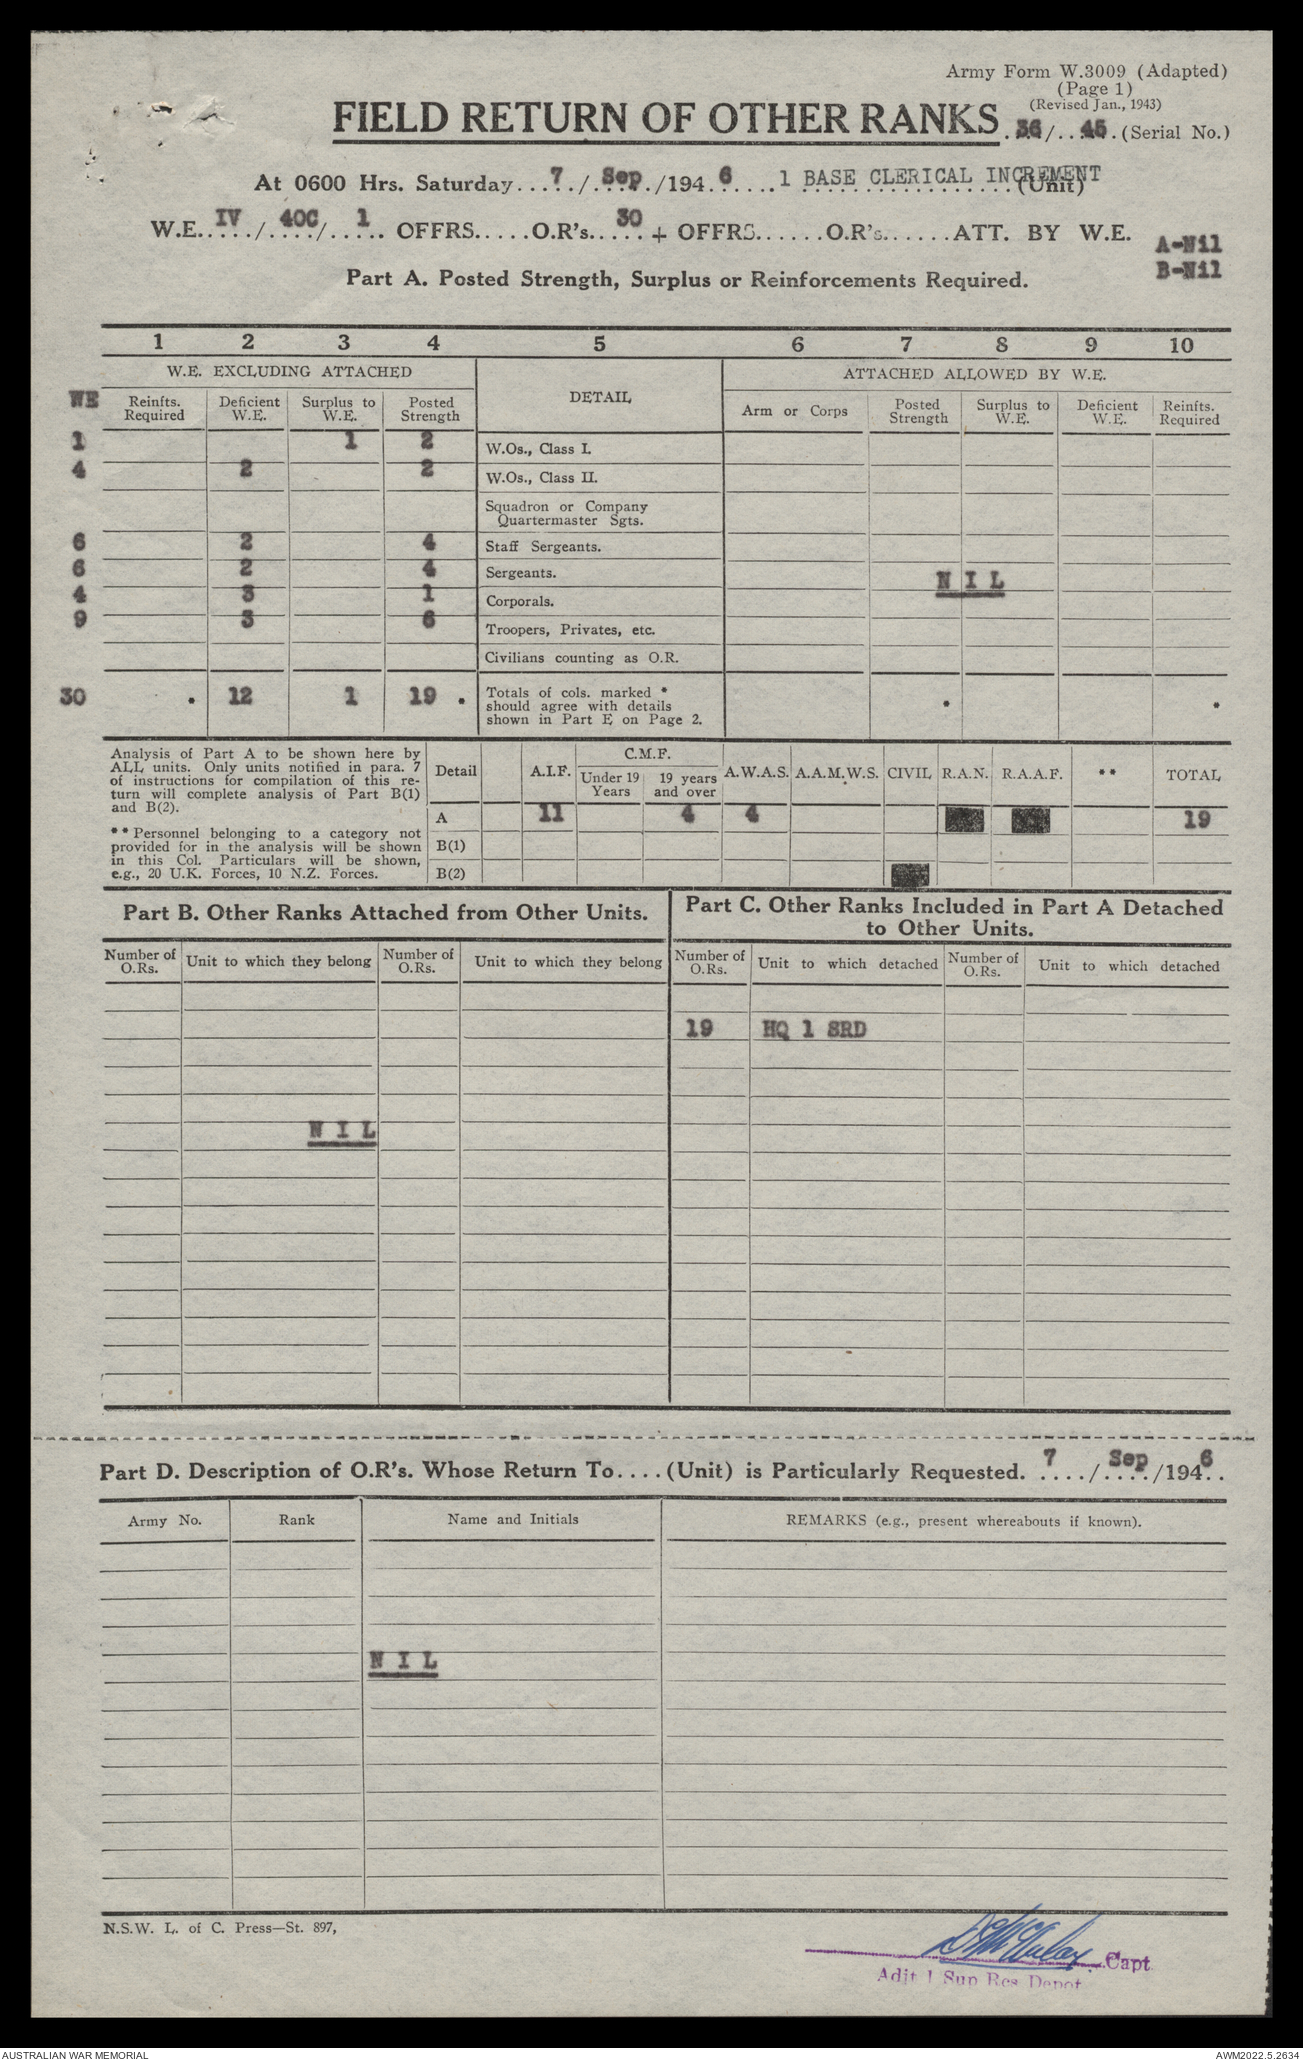 Army Form W.3009 (Adapted)
(Page 1)
(Revised Jan., 1943)
FIELD RETURN OF OTHER RANKS . 36/. . 45 . (Serial No.)
At 0600 Hrs. Saturday. . . 7 ./. Sep ./194 . 6 . . . . . 1 BASE CLERICAL INCREMENT (Unit)
W.E. . IV . ./ . 40C . ./ . . 1 . . OFFRS. . . . . O.R's. . 30 . . + OFFRS. . . . . . O.R's. . . . . . ATT. BY W.E.
A-Nil
B-Nil
Part A. Posted Strength, Surplus or Reinforcements Required.
1 2 3 4 5 6 7 8 9 10
W.E. EXCLUDING ATTACHED DETAIL ATTACHED ALLOWED BY W.E.
WE Reinfts. Required Deficient W.E. Surplus to W.E. Posted Strength Arm or Corps Posted Strength Surplus to W.E. Deficient W.E. Reinfts. Required
1 1 2 W.Os., Class I.
4 2 2 W.Os., Class II.
Squadron or Company
Quartermaster Sgts.
6 2 4 Staff Sergeants.
6 2 4 Sergeants. N I L
4 3 1 Corporals.
9 3 6 Troopers, Privates, etc.
Civilians counting as O.R.
30 * 12 1 19 * Totals of cols. marked * * *
should agree with details
shown in Part E on Page 2.
Analysis of Part A to be shown here by
ALL units. Only units notified in para. 7
of instructions for compilation of this re-
turn will complete analysis of Part B(1)
and B(2).
** Personnel belonging to a category not
provided for in the analysis will be shown
in this Col. Particulars will be shown,
e.g., 20 U.K. Forces, 10 N.Z. Forces.
Detail A.I.F. C.M.F. Under 19 Years 19 years and over A.W.A.S. A.A.M.W.S. CIVIL R.A.N. R.A.A.F. ** TOTAL
A 11 4 4 19
B(1)
B(2)
Part B. Other Ranks Attached from Other Units.
Number of O.Rs. Unit to which they belong Number of O.Rs. Unit to which they belong
N I L
Part C. Other Ranks Included in Part A Detached
to Other Units.
Number of O.Rs. Unit to which detached Number of O.Rs. Unit to which detached
19 HQ 1 SRD
Part D. Description of O.R's. Whose Return To. . . . (Unit) is Particularly Requested. 7 . . . ./. Sep . ./194 6 . .
Army No. Rank Name and Initials REMARKS (e.g., present whereabouts if known).
N I L
N.S.W. L. of C. Press—St. 897,
Capt
Adjt 1 Sup Res Depot
AUSTRALIAN WAR MEMORIAL AWM2022.5.2634